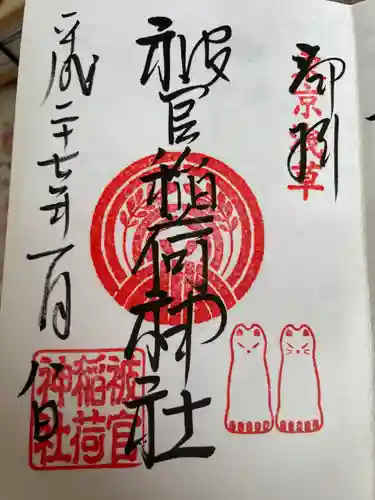 奉拝
東京浅草
被官稲荷神社
被官
稲荷
神社
平成二十七年一月八日